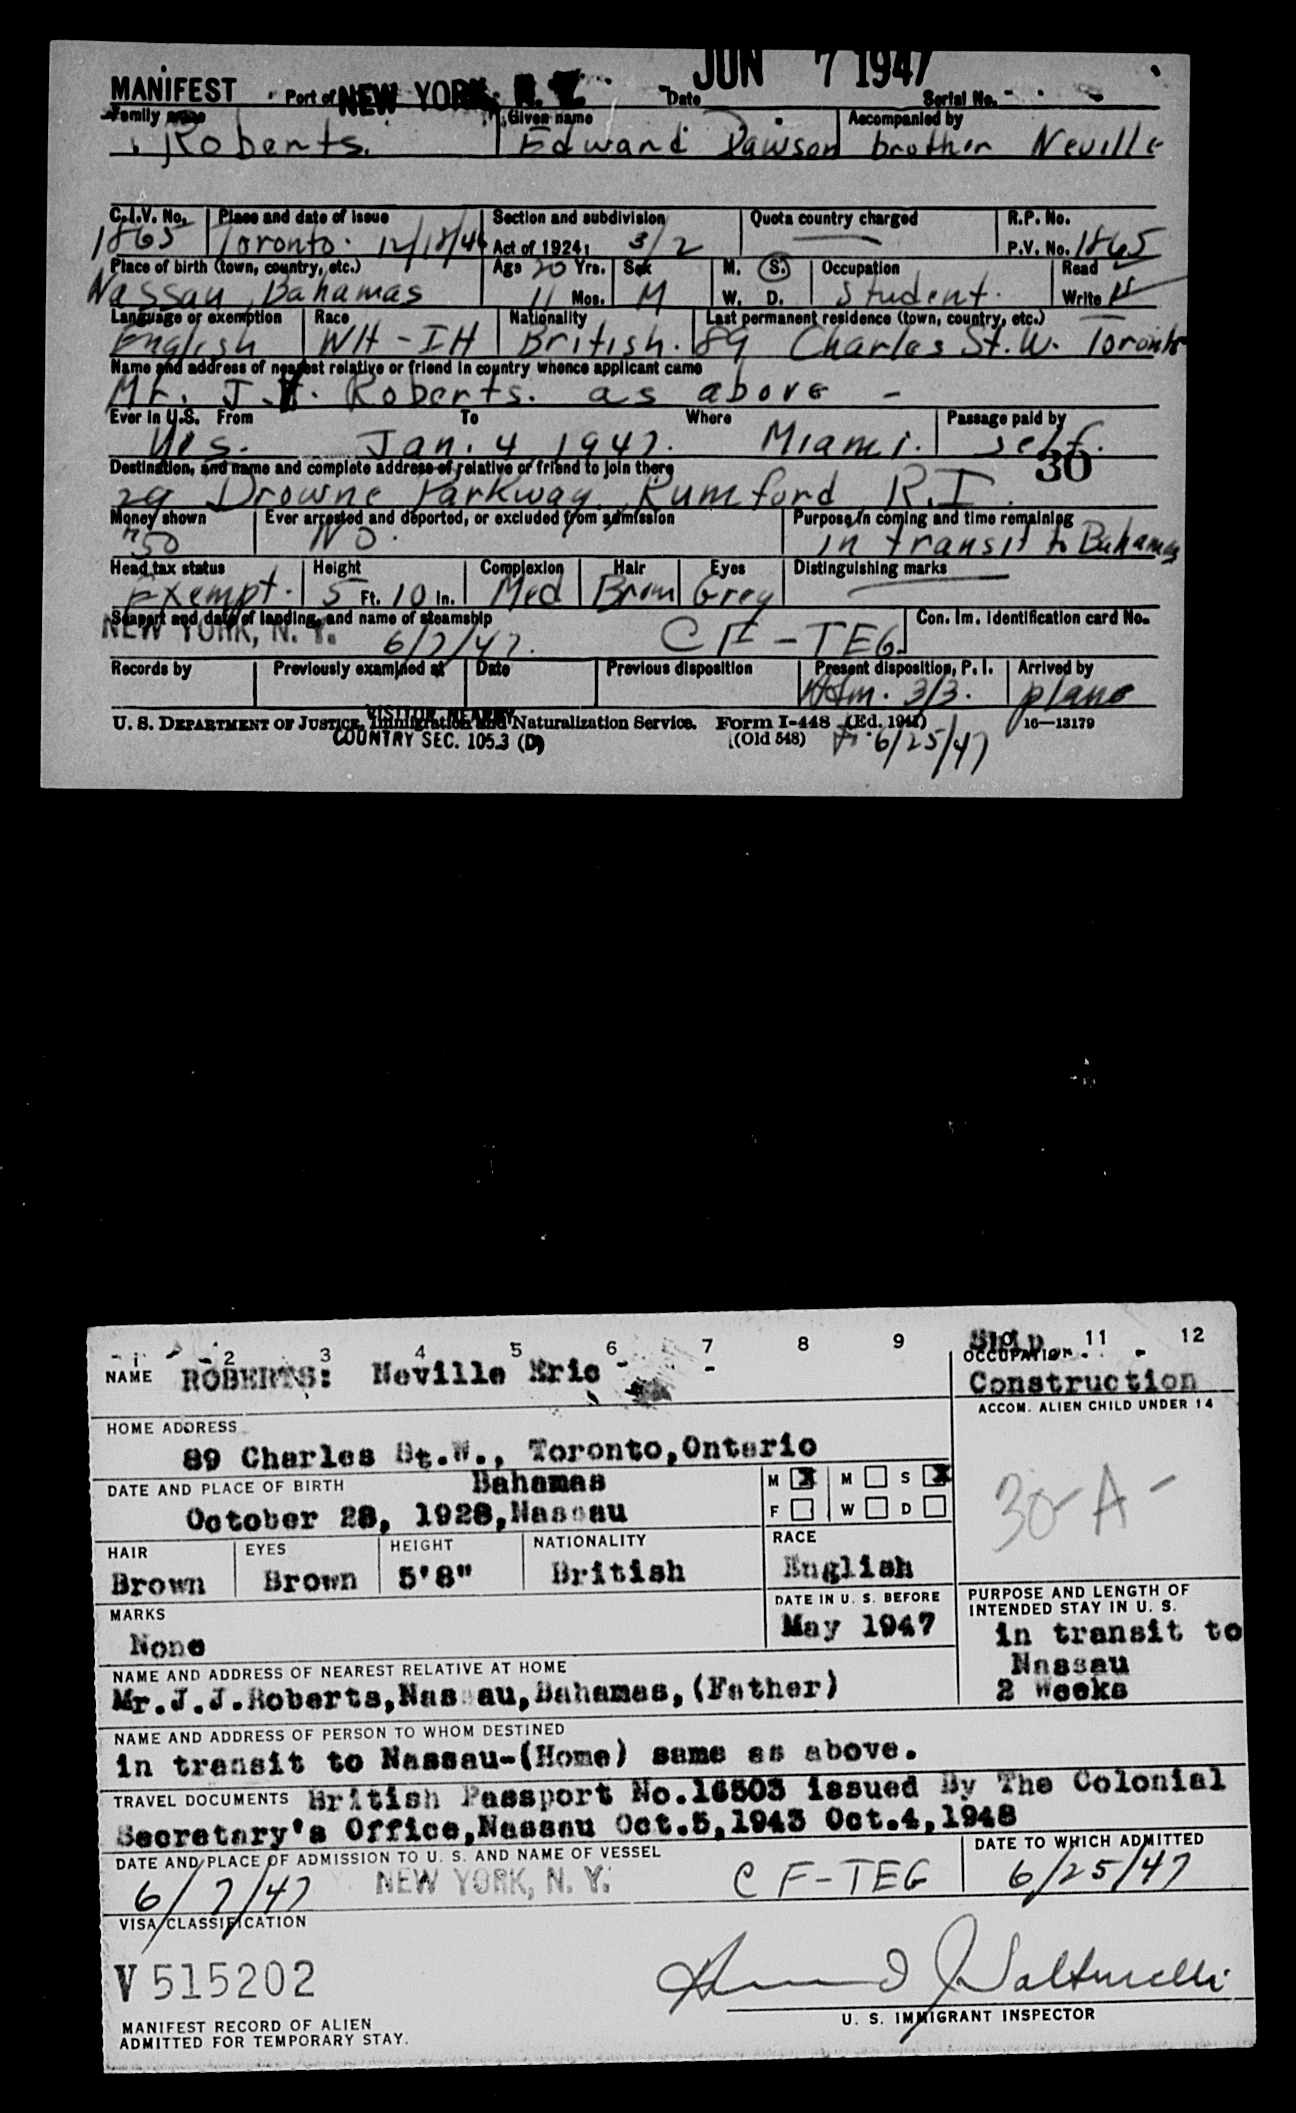 JUN 7 1947
MANIFEST Port of NEW YORK, N. Y. Date Serial No.
Family name Given name Accompanied by
Roberts. Edward Dawson brother Neville
C.I.V. No. Place and date of issue Section and subdivision Quota country charged R.P. No.
1865 Toronto. 12/18/46 Act of 1924: 3/2 P.V. No. 1865
Place of birth (town, country, etc.) Age 20 Yrs. Sex M. S. Occupation Read
Nassau, Bahamas 11 Mos. M W. D. Student. Write
Language or exemption Race Nationality Last permanent residence (town, country, etc.)
English WH-IH British. 89 Charles St. W. Toronto
Name and address of nearest relative or friend in country whence applicant came
Mr. J. Roberts. as above -
Ever in U.S. From To Where Passage paid by
Yes. Jan. 4 1947. Miami. self.
Destination, and name and complete address of relative or friend to join there 30
29 Drowne Parkway Rumford R.I.
Money shown Ever arrested and deported, or excluded from admission Purpose in coming and time remaining
$50 NO. in transit to Bahamas
Head tax status Height Complexion Hair Eyes Distinguishing marks
Exempt. 5 Ft. 10 In. Med Brown Grey
Seaport and date of landing, and name of steamship Con. Im. Identification card No.
NEW YORK, N. Y. 6/7/47. CF-TEG
Records by Previously examined at Date Previous disposition Present disposition, P. I. Arrived by
Adm. 3/3. plane
U. S. DEPARTMENT OF JUSTICE, Immigration and Naturalization Service. Form I-448 (Ed. 1941) 16—13179
VISITOR NEARBY
COUNTRY SEC. 105.3 (D) (Old 548) 6/25/47
1 2 3 4 5 6 7 8 9 10 11 12
Ship
NAME ROBERTS: Neville Eric OCCUPATION
Construction
ACCOM. ALIEN CHILD UNDER 14
HOME ADDRESS
89 Charles St.W., Toronto,Ontario
DATE AND PLACE OF BIRTH Bahamas M X M S X
October 28, 1928,Nassau F W D
30-A-
HAIR EYES HEIGHT NATIONALITY RACE
Brown Brown 5'8" British English
MARKS DATE IN U. S. BEFORE PURPOSE AND LENGTH OF
INTENDED STAY IN U. S.
None May 1947 in transit to
Nassau
2 Weeks
NAME AND ADDRESS OF NEAREST RELATIVE AT HOME
Mr.J.J.Roberts,Nassau,Bahamas,(Father)
NAME AND ADDRESS OF PERSON TO WHOM DESTINED
in transit to Nassau-(Home) same as above.
TRAVEL DOCUMENTS British Passport No.16503 issued By The Colonial
Secretary's Office,Nassau Oct.5,1943 Oct.4,1948
DATE AND PLACE OF ADMISSION TO U. S. AND NAME OF VESSEL DATE TO WHICH ADMITTED
6/7/47 NEW YORK, N. Y. CF-TEG 6/25/47
VISA CLASSIFICATION
V 515202
U. S. IMMIGRANT INSPECTOR
MANIFEST RECORD OF ALIEN
ADMITTED FOR TEMPORARY STAY.